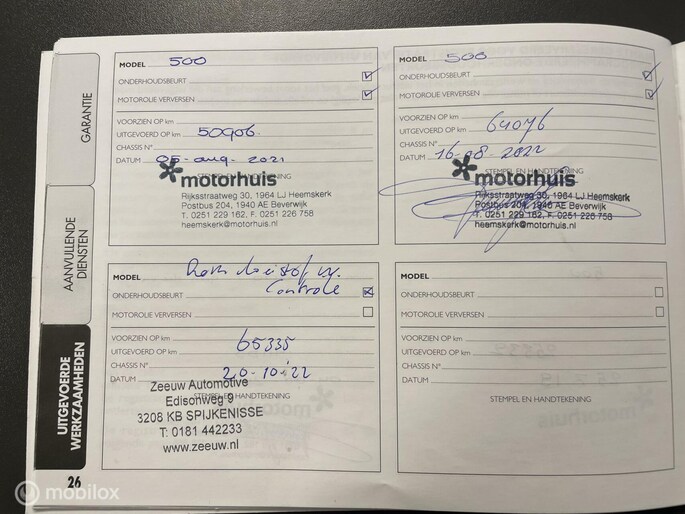 GARANTIE
AANVULLENDE
DIENSTEN
UITGEVOERDE
WERKZAAMHEDEN
26
MODEL 500
ONDERHOUDSBEURT
MOTOROLIE VERVERSEN
VOORZIEN OP km
UITGEVOERD OP km 50906
CHASSIS N°
DATUM 05-aug-2021
STEMPEL EN HANDTEKENING
motorhuis
Rijksstraatweg 30, 1964 LJ Heemskerk
Postbus 204, 1940 AE Beverwijk
T. 0251 229 162, F. 0251 226 758
heemskerk@motorhuis.nl
MODEL 500
ONDERHOUDSBEURT
MOTOROLIE VERVERSEN
VOORZIEN OP km
UITGEVOERD OP km 64076
CHASSIS N°
DATUM 16-08-2022
STEMPEL EN HANDTEKENING
motorhuis
Rijksstraatweg 30, 1964 LJ Heemskerk
Postbus 204, 1940 AE Beverwijk
T. 0251 229 162, F. 0251 226 758
heemskerk@motorhuis.nl
MODEL
Controle
ONDERHOUDSBEURT
MOTOROLIE VERVERSEN
VOORZIEN OP km
UITGEVOERD OP km 65335
CHASSIS N°
DATUM 20-10-'22
STEMPEL EN HANDTEKENING
Zeeuw Automotive
Edisonweg 9
3208 KB SPIJKENISSE
T: 0181 442233
www.zeeuw.nl
MODEL
ONDERHOUDSBEURT
MOTOROLIE VERVERSEN
VOORZIEN OP km
UITGEVOERD OP km
CHASSIS N°
DATUM
STEMPEL EN HANDTEKENING
mobilox